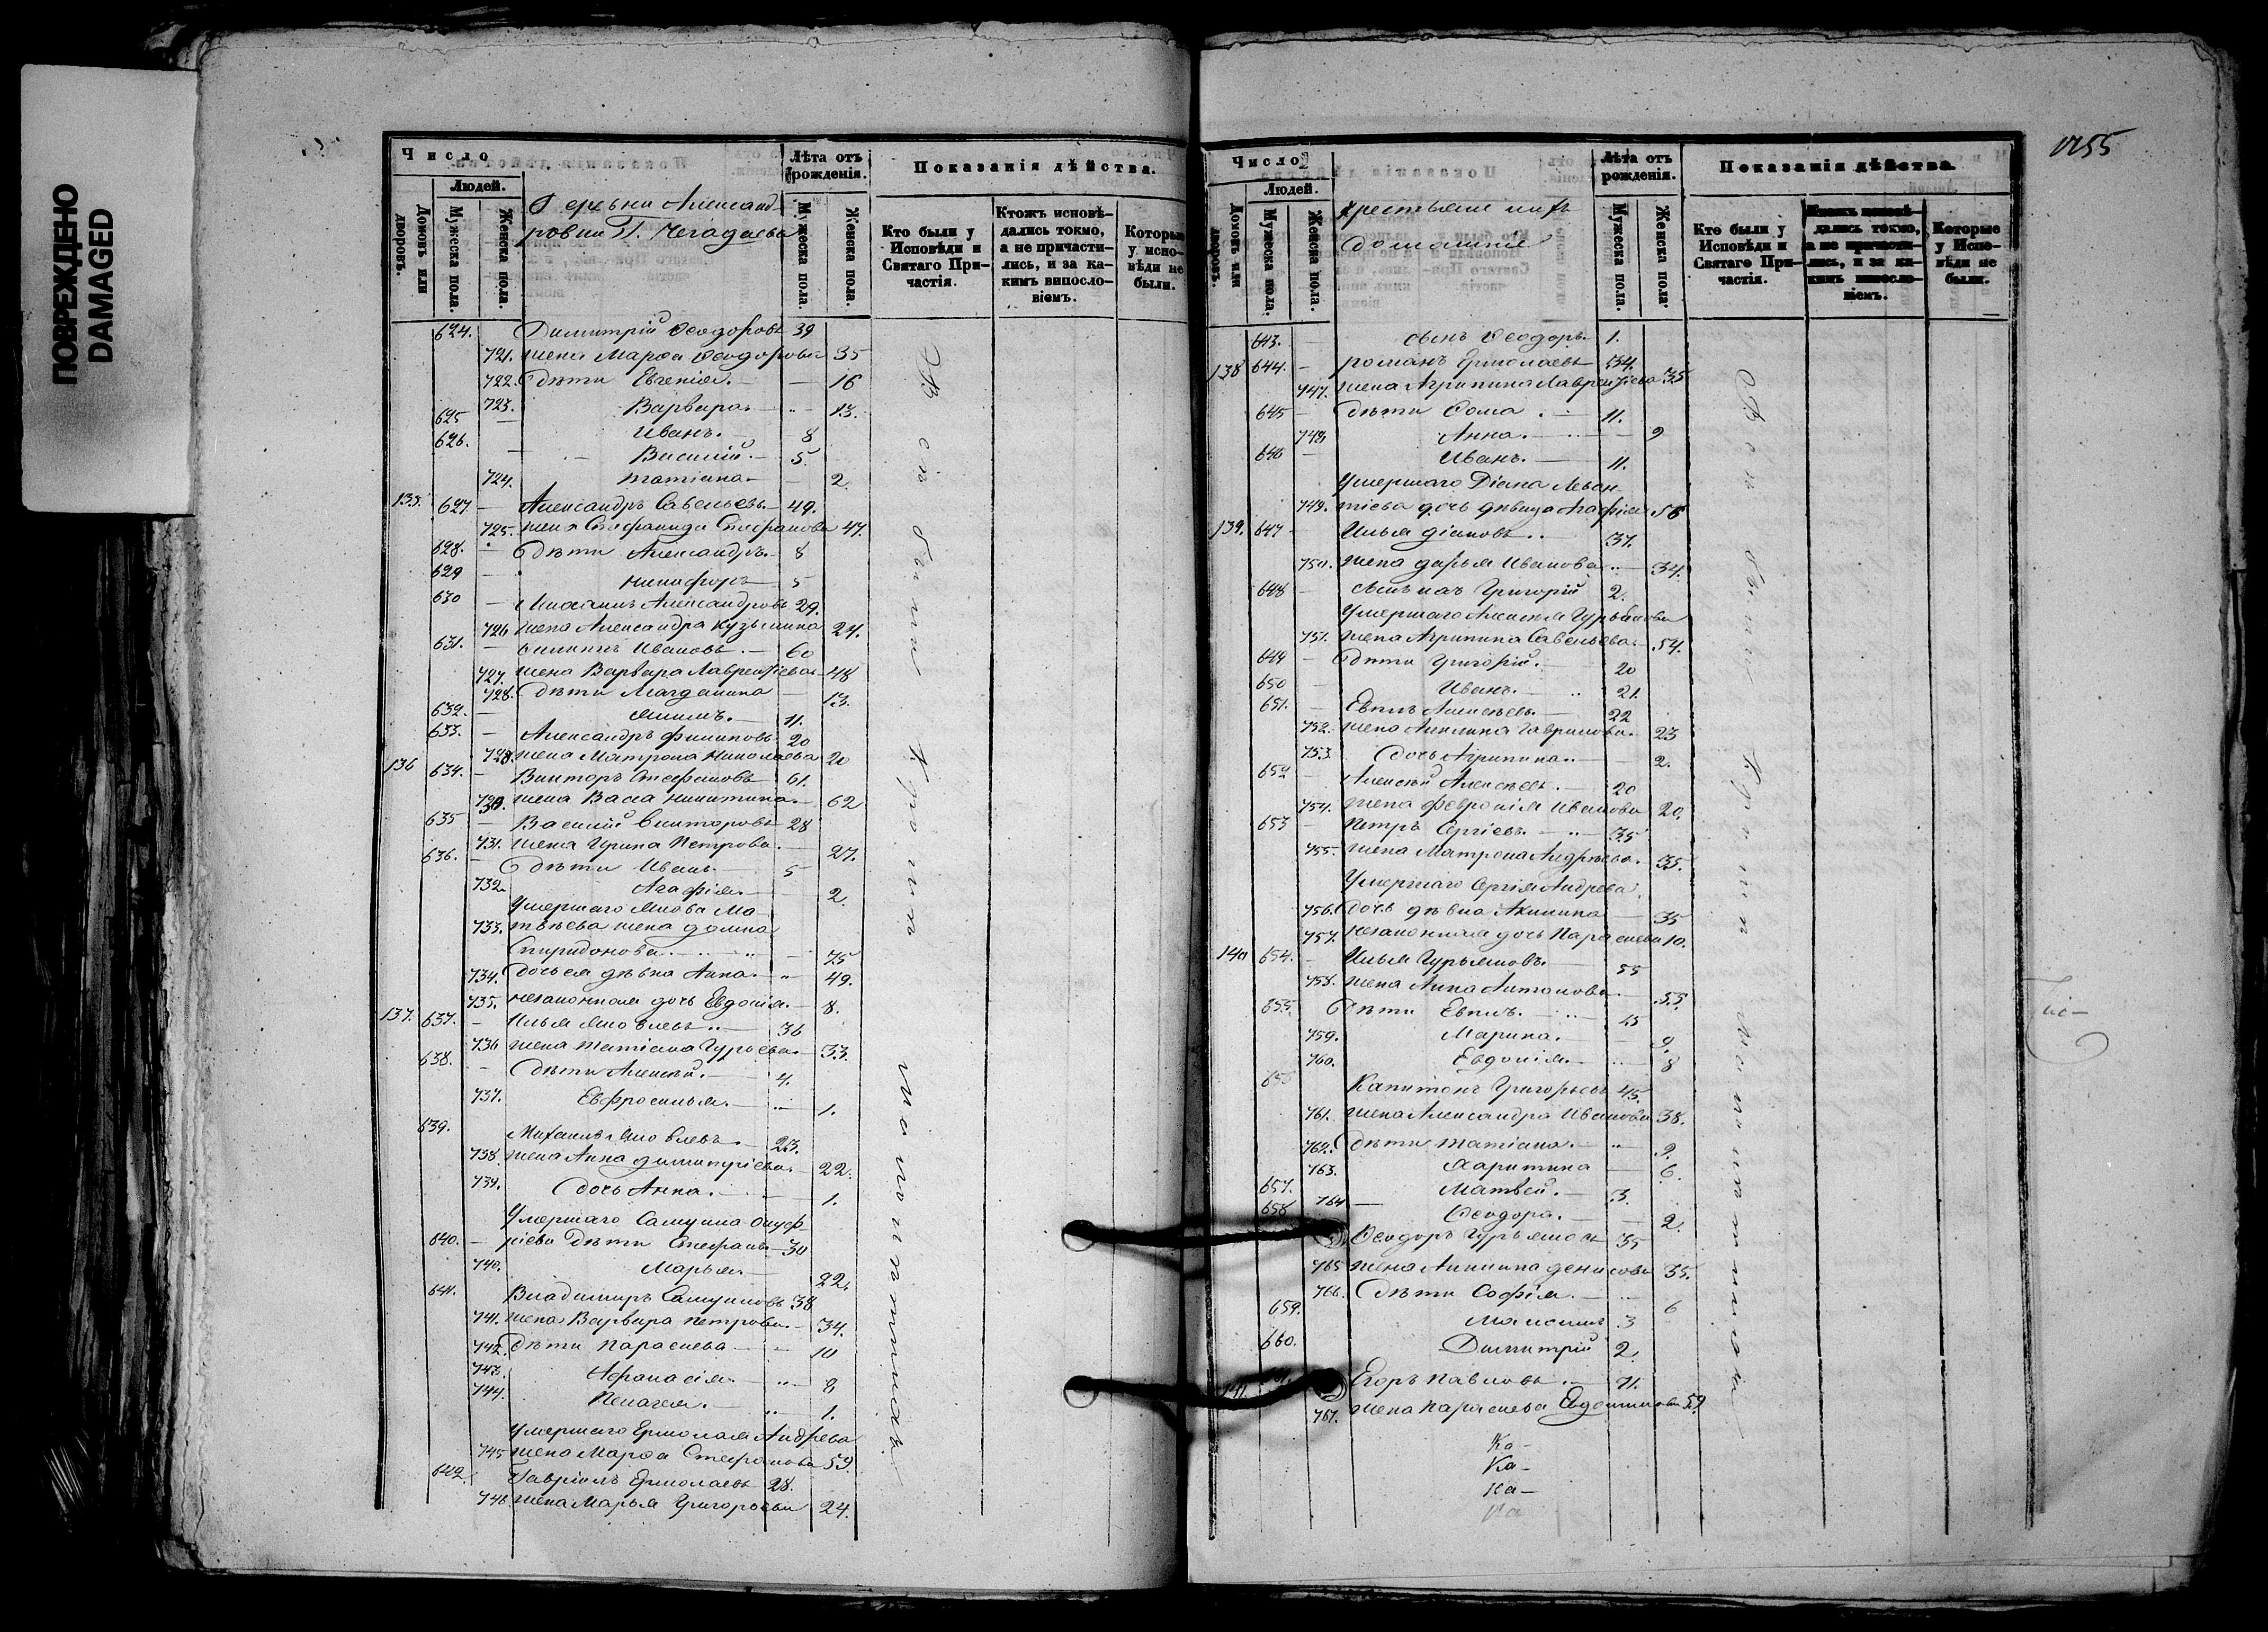 ПОВРЕЖДЕНО
DAMAGED
Число
Людей.
Домовъ или дворовъ.
Мужеска пола.
Женска пола.
Деревни Александ-
ровки Г. Чегадаева
Лѣта отъ рожденія.
Мужеска пола.
Женска пола.
Показанія дѣйства.
Кто были у Исповѣди и Святаго При-частія.
Ктожъ исповѣ-дались токмо, а не причасти-лись, и за ка-кимъ винословіемъ.
Которые у испо-вѣди не были.
624. Димитрій Ѳеодоровъ 39
721. жена Марѳа Ѳеодорова 35
722. Дѣти Евгенія. — 16
723. Варвара. — 13.
625 — Иванъ. — 8
626. — Василій. — 5.
724. Татіана — 2.
135. 627 — Александръ Савельевъ. — 49.
725. жена Стефанида Стефанова 47.
628. Дѣти Александръ. 8
629 — Никифоръ — 5
630 — Михаилъ Александровъ 29.
726 жена Александра Кузьмина 24.
631. — Филиппъ Ивановъ. — 60
727. жена Варвара Лаврентіева 48
728. Дѣти Магдалина — 13.
632. — 11.
633. — Александръ Филиповъ 20
728 жена Матрона Николаева 20
136 634. — Викторъ Стефановъ 61.
730. жена Васса Никитина. — 62
635 — Василій Викторовъ 28
731. жена Ирина Петрова. — 27.
636. — Дѣти Иванъ. — 5
732. Агафія. — 2.
Умершаго Якова Ма-
733. твѣева жена Домна
Спиридонова. — 75
734. Дочь ея дѣвка Анна. 49.
735. незаконная дочь Евдокія. 8.
137. 637. — Илья Яковлевъ — 36
736 жена Татіана Гурьева. 33.
638. — Дѣти Алексѣй. — 4.
737. Евфросинья. — 1.
639. Михаилъ Яковлевъ. — 23.
738. жена Анна Димитріева. 22.
739. Дочь Анна. — 1.
Умершаго Самуила Онуф-
640. — ріева Дѣти Стефанъ — 30
740. Марья. — 22.
641. Владимиръ Самуиловъ 38
741. жена Варвара Петрова. — 34.
742. Дѣти Параскева — 10
743. Афанасія. — 8
744. Пелагея. — 1.
Умершаго Ермолая Андрева
745 жена Марѳа Стефанова 59.
642. Гавріилъ Ермолаевъ 28.
746. жена Марья Григорьева 24.
Всѣ были кромѣ малолѣтнихъ
1755
Число
Людей.
Домовъ или дворовъ.
Мужеска пола.
Женска пола.
крестьяне ихъ
домашніе
Лѣта отъ рожденія.
Мужеска пола.
Женска пола.
Показанія дѣйства.
Кто были у Исповѣди и Святаго При-частія.
Ктожъ исповѣ-дались токмо, а не причасти-лись, и за ка-кимъ винословіемъ.
Которые у Испо-вѣди не были.
643. — сынъ Ѳеодоръ 1.
138 644. — Романъ Ермолаевъ 34.
747. жена Агрипина Лаврентіева 35
645 — Дѣти Ѳома. — 11.
748. Анна. — 9
646 — Иванъ. — 11.
Умершаго
749. тіева дочь дѣвица Агафія 56
139. 647 — Илья 37.
750. жена Дарья Иванова — 34.
648 — Григорій 2.
Умершаго Алексѣя Гурьянова
751. жена Агрипина Савельева. 54.
649 — Дѣти Григорій. — 20
650 — Иванъ. — 21.
651. — Алексѣевъ. 22
752. жена Акилина Гаврилова. 23
753 Дочь Агрипина. — 2.
652 — Алексѣй Алексѣевъ. — 20
754. жена Февронія Иванова 20.
653 — Петръ Сергіевъ. — 35
755. жена Матрона Андрѣева. 35.
Умершаго Сергія Андрева
756. Дочь дѣвка Акилина — 35
757. незаконная дочь Параскева 10.
140 654. — Илья Гурьяновъ. — 55
758. жена Анна Антонова. 55.
655. Дѣти — 15
759. Марина. — 9.
760. Евдокія. — 8
656 Капитонъ Григорьевъ 45.
761. жена Александра Иванова 38.
762. Дѣти Татіана. — 9.
763. Харитина — 6.
657. Матвей. — 3.
658 764 — Ѳеодора. — 2.
Ѳеодоръ Гурьяновъ 35
765 жена Акилина Денисова 35.
766. Дѣти Софія. — 6
659. Максимъ 3
660. Димитрій 2.
141. Егоръ Павловъ — 71.
767. жена Параскева Евдокимова 59.
Ка-
Ка-
Ка-
Ка
Всѣ были кромѣ малолѣтнихъ